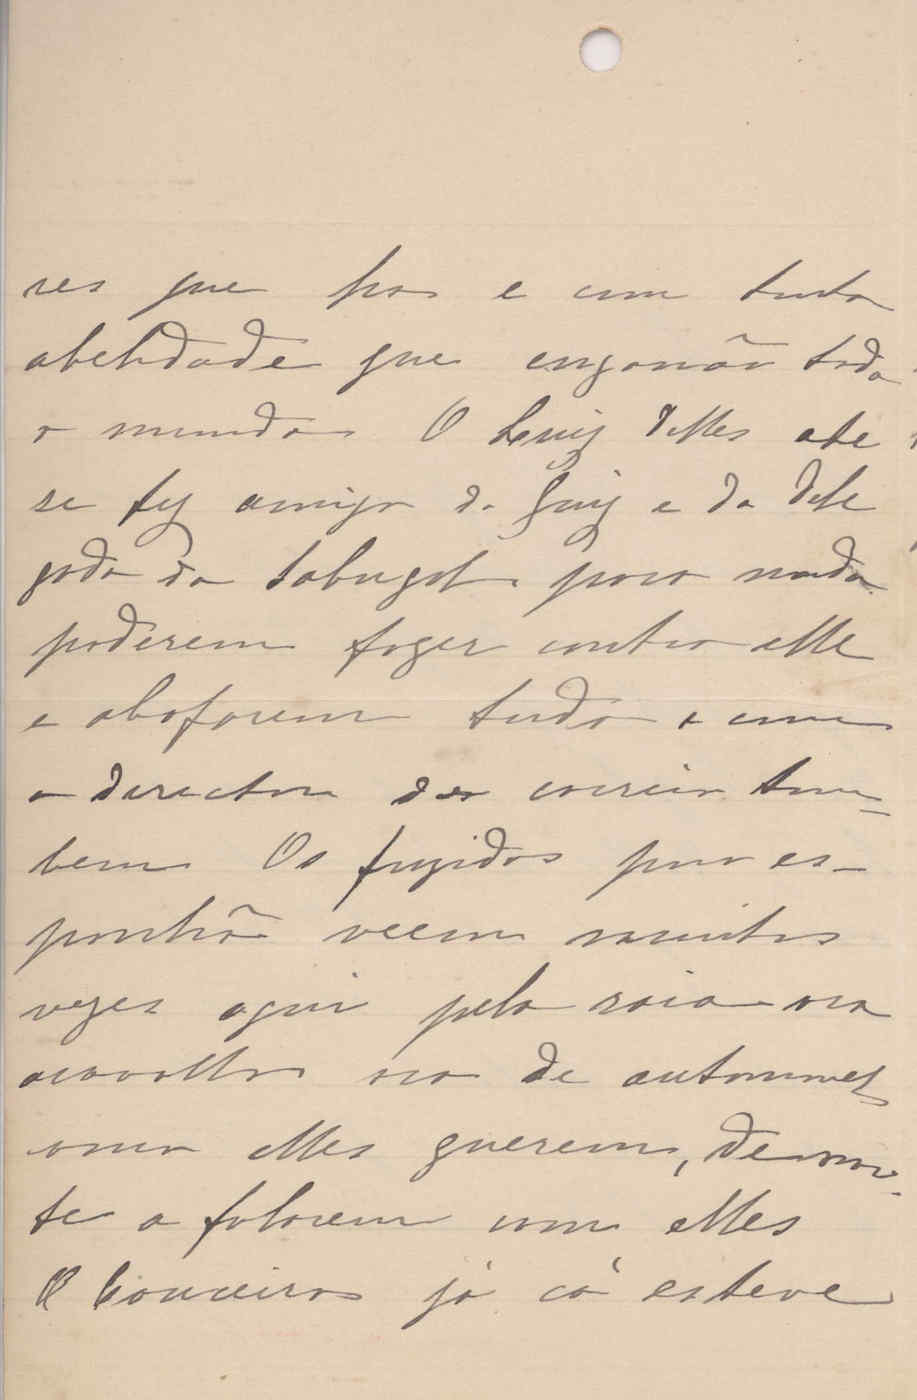 res que ha e com tanta
abelidade que enganão todo
o mundo O Luiz Telles ate
se fez amigo do Juiz e do dele
gado do Sabugal para nada
poderem fazer contra elle
e abafarem tudo e com
o director do correio tam_
bem Os fugidos por es_
panhã veem muitas
vezes aqui pela raia ora
acavallo ora de automovel
como elles querem, de noi_
te a falarem com elles
O Couceiro já cá esteve